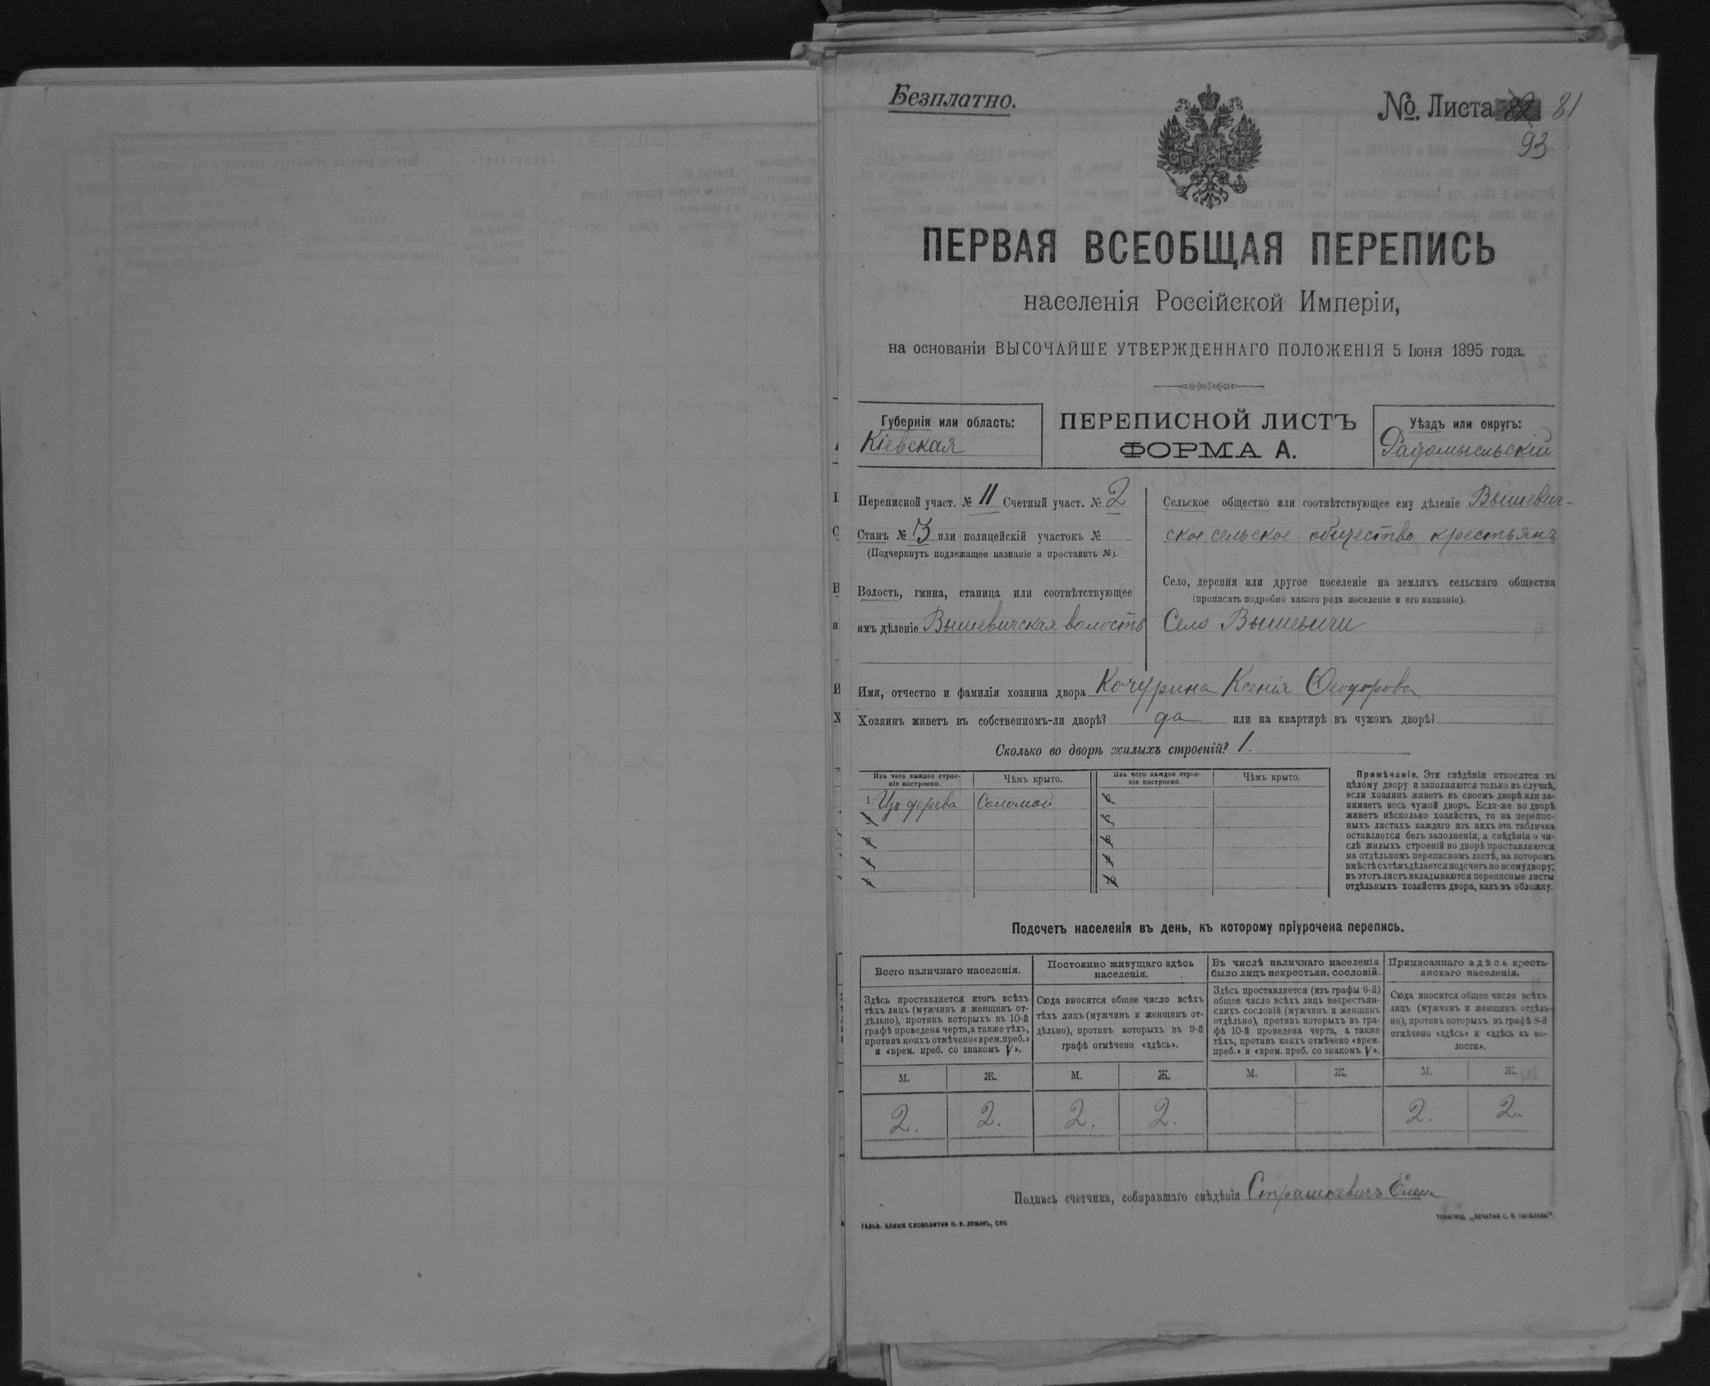 Безплатно.
№ Листа 82 81
93
ПЕРВАЯ ВСЕОБЩАЯ ПЕРЕПИСЬ
населенія Россійской Имперіи,
на основаніи ВЫСОЧАЙШЕ УТВЕРЖДЕННАГО ПОЛОЖЕНІЯ 5 Іюня 1895 года.
Губернія или область:
Кіевская
ПЕРЕПИСНОЙ ЛИСТЪ
ФОРМА А.
Уѣздъ или округъ:
Радомысльскій
Переписной участ. № 11 Счетный участ. № 2
Станъ № 3 или полицейскій участокъ №
(Подчеркнуть подлежащее названіе и проставить №).
Волость, гмина, станица или соотвѣтствующее
имъ дѣленіе Вышевичская волость
Сельское общество или соотвѣтствующее ему дѣленіе Вышевич-
ское сельское общество крестьянъ
Село, деревня или другое поселеніе на земляхъ сельскаго общества
(прописать подробно какого рода поселеніе и его названіе).
Село Вышевичи
Имя, отчество и фамилія хозяина двора Кочурина Ксенія Ѳеодорова
Хозяинъ живетъ въ собственномъ-ли дворѣ? да или на квартирѣ въ чужомъ дворѣ?
Сколько во дворѣ жилыхъ строеній? 1.
Изъ чего каждое строе-
ніе построено.
Чѣмъ крыто.
Изъ чего каждое строе-
ніе построено.
Чѣмъ крыто.
1 Изъ дерева Соломой
Примѣчаніе. Эти свѣдѣнія относятся къ
цѣлому двору и заполняются только въ случаѣ,
если хозяинъ живетъ въ своемъ дворѣ или за-
нимаетъ весь чужой дворъ. Если-же во дворѣ
живетъ нѣсколько хозяйствъ, то на перепис-
ныхъ листахъ каждаго изъ нихъ эта табличка
оставляется безъ заполненія, а свѣдѣнія о чи-
слѣ жилыхъ строеній во дворѣ проставляются
на отдѣльномъ переписномъ листѣ, на которомъ
вмѣстѣ съ тѣмъ дѣлается подсчетъ по всему двору;
въ этотъ листъ вкладываются переписные листы
отдѣльныхъ хозяйствъ двора, какъ въ обложку.
Подсчетъ населенія въ день, къ которому пріурочена перепись.
Всего наличнаго населенія.
Здѣсь проставляется итогъ всѣхъ
тѣхъ лицъ (мужчинъ и женщинъ от-
дѣльно), противъ которыхъ въ 10-й
графѣ проведена черта, а также тѣхъ,
противъ коихъ отмѣчено «врем. преб.»
и «врем. преб. со знакомъ V».
Постоянно живущаго здѣсь
населенія.
Сюда вносится общее число всѣхъ
тѣхъ лицъ (мужчинъ и женщинъ от-
дѣльно), противъ которыхъ въ 9-й
графѣ отмѣчено «здѣсь».
Въ числѣ наличнаго населенія
было лицъ некрестьян. сословій.
Здѣсь проставляется (изъ графы 6-й)
общее число всѣхъ лицъ некрестьян-
скихъ сословій (мужчинъ и женщинъ
отдѣльно), противъ которыхъ въ гра-
фѣ 10-й проведена черта, а также
тѣхъ, противъ коихъ отмѣчено «врем.
преб.» и «врем. преб. со знакомъ V».
Приписаннаго здѣсь кресть-
янскаго населенія.
Сюда вносится общее число всѣхъ
лицъ (мужчинъ и женщинъ отдѣль-
но), противъ которыхъ въ графѣ 8-й
отмѣчено «здѣсь» и «здѣсь въ во-
лости».
М. Ж. М. Ж. М. Ж. М. Ж.
2. 2. 2. 2. 2. 2.
Подпись счетчика, собиравшаго свѣдѣнія Страшкевичъ
ГАЛЬВ. КЛИШЕ СЛОВОЛИТНИ О. И. ЛЕМАНЪ, СПБ
ТОВАРИЩ. „ПЕЧАТНЯ С. П. ЯКОВЛЕВА“.